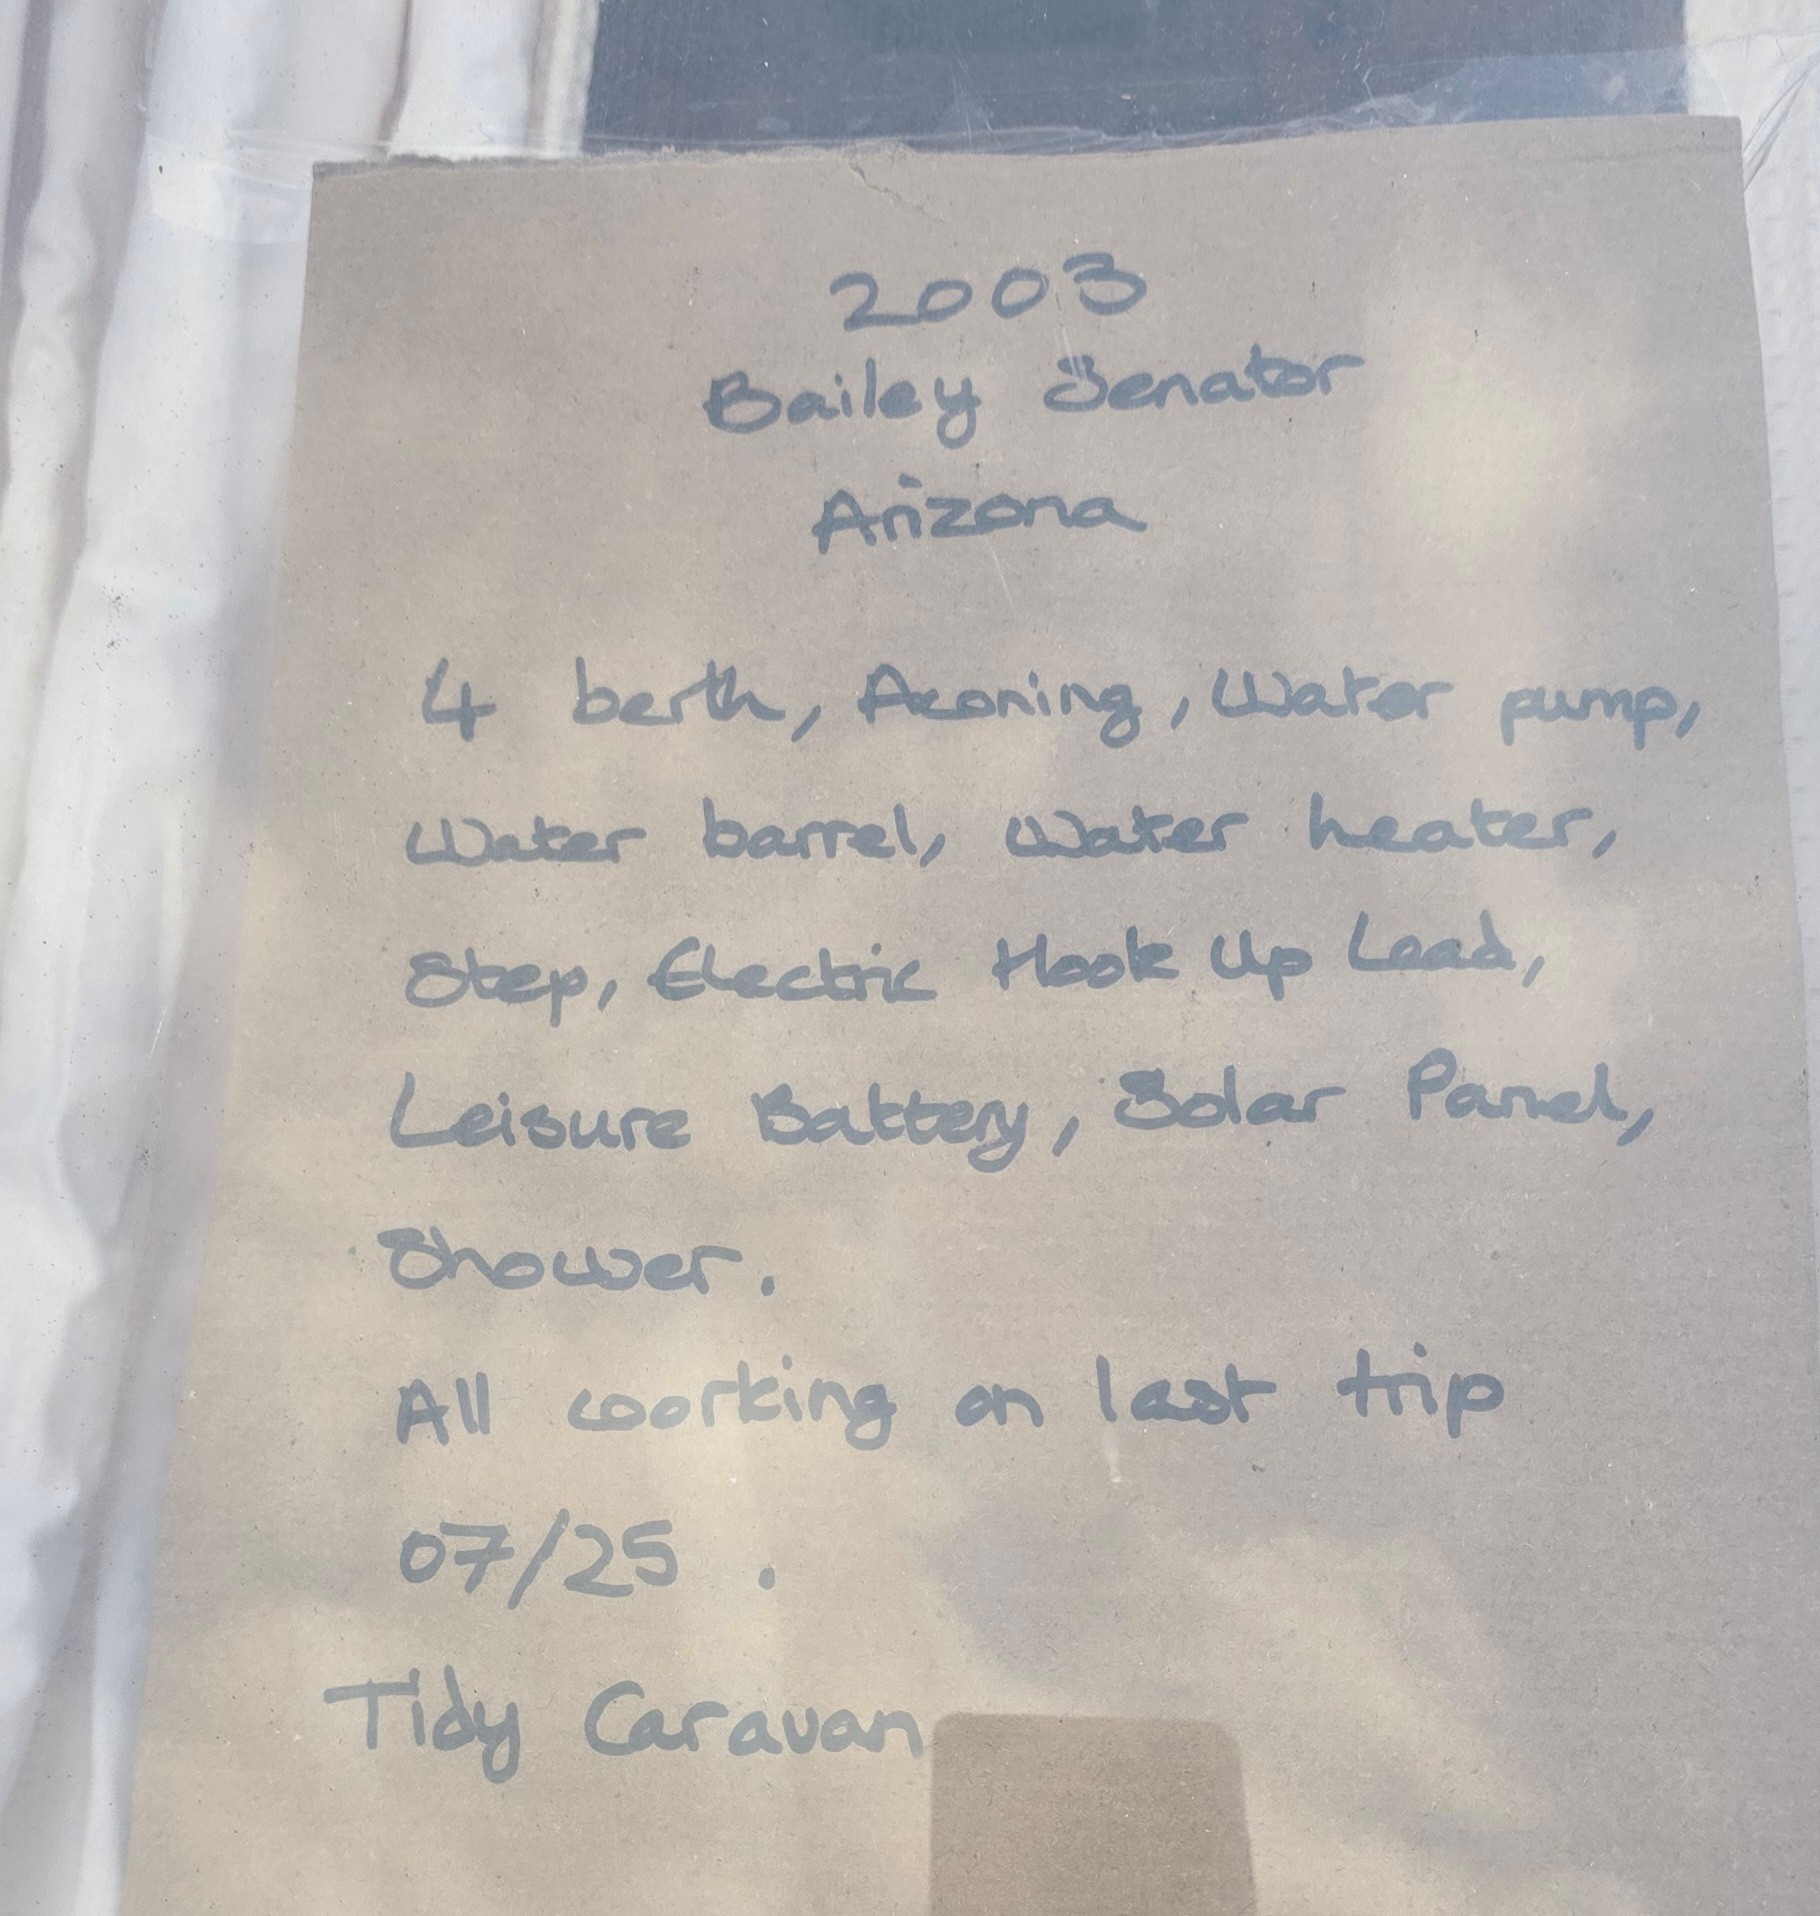 2003
Bailey Senator
Arizona
4 berth, Awning, Water pump,
Water barrel, Water heater,
Step, Electric Hook Up Lead,
Leisure Battery, Solar Panel,
Shower.
All working on last trip
07/25.
Tidy Caravan